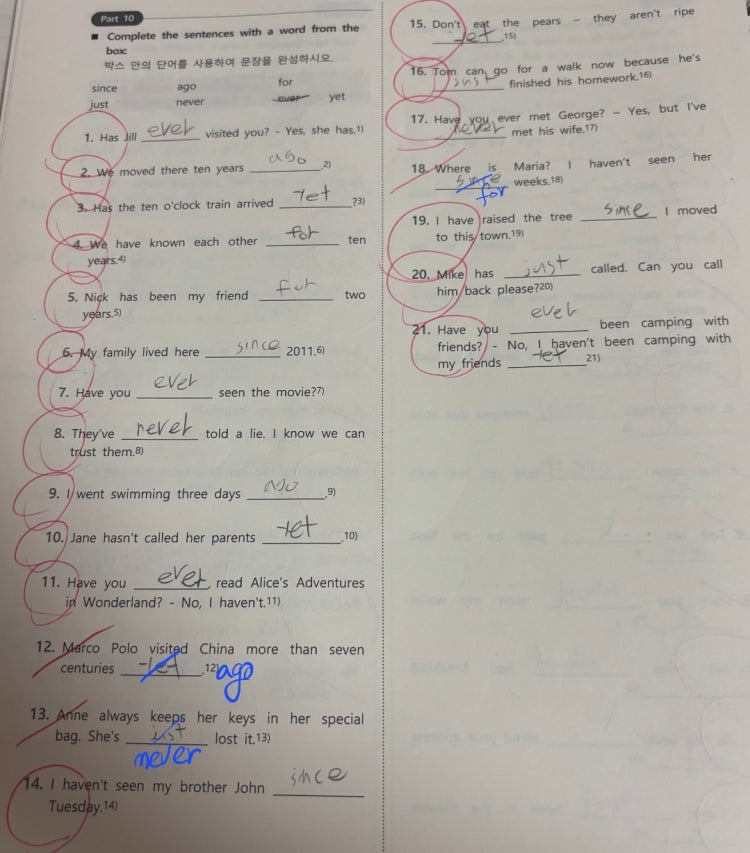 Part 10
■ Complete the sentences with a word from the
box:
박스 안의 단어를 사용하여 문장을 완성하시오.
since ago for
just never ever yet
1. Has Jill ever visited you? - Yes, she has.1)
2. We moved there ten years ago .2)
3. Has the ten o'clock train arrived yet ?3)
4. We have known each other for ten
years.4)
5. Nick has been my friend for two
years.5)
6. My family lived here since 2011.6)
7. Have you ever seen the movie?7)
8. They've never told a lie. I know we can
trust them.8)
9. I went swimming three days ago .9)
10. Jane hasn't called her parents yet .10)
11. Have you ever read Alice's Adventures
in Wonderland? - No, I haven't.11)
12. Marco Polo visited China more than seven
centuries yet .12) ago
13. Anne always keeps her keys in her special
bag. She's just lost it.13)
never
14. I haven't seen my brother John since
Tuesday.14)
15. Don't eat the pears – they aren't ripe
yet .15)
16. Tom can go for a walk now because he's
just finished his homework.16)
17. Have you ever met George? – Yes, but I've
never met his wife.17)
18. Where is Maria? I haven't seen her
since weeks.18)
for
19. I have raised the tree since I moved
to this town.19)
20. Mike has just called. Can you call
him back please?20)
21. Have you ever been camping with
friends? - No, I haven't been camping with
my friends yet 21)